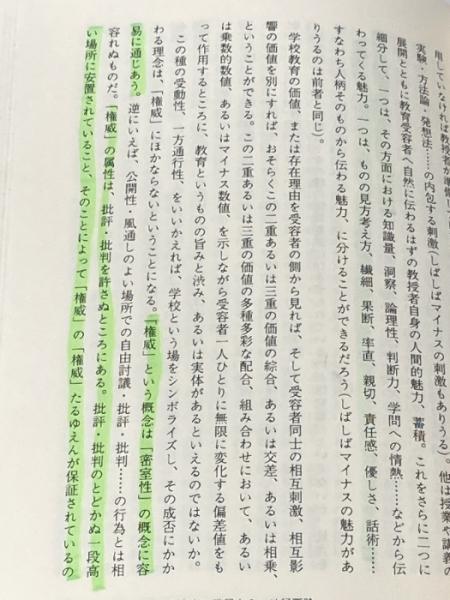 用していなければ教授者が準備し
実験・方法論・発想法……の内包する刺激(しばしばマイナスの刺激もありうる)。他は授業や講義の
展開とともに教育受容者へ自然に伝わるはずの教授者自身の人間的魅力、蓄積。これをさらに二つに
細分して、一つは、その方面における知識量、洞察、論理性、判断力、学問への情熱……などから伝
わってくる魅力。一つは、ものの見方考え方、繊細、果断、率直、親切、責任感、優しさ、話術……
すなわち人柄そのものから伝わる魅力、に分けることができるだろう(しばしばマイナスの魅力があ
りうるのは前者と同じ)。
学校教育の価値、または存在理由を受容者の側から見れば、そして受容者同士の相互刺激、相互影
響の価値を別にすれば、おそらくこの二重あるいは三重の価値の綜合、あるいは交差、あるいは相乗、
ということができる。この二重あるいは三重の価値の多種多彩な配合、組み合わせにおいて、あるい
は乗数的数値、あるいはマイナス数値、を示しながら受容者一人ひとりに無限に変化する偏差値をも
って作用するところに、教育というものの旨みと渋み、あるいは実体があるといえるのではないか。
この種の受動性、一方通行性、をいいかえれば、学校という場をシンボライズし、その成否にかか
わる理念は、「権威」にほかならないということになる。「権威」という概念は「密室性」の概念に容
易に通じあう。逆にいえば、公開性・風通しのよい場所での自由討議・批評・批判……の行為とは相
容れぬものだ。「権威」の属性は、批評・批判を許さぬところにある。批評・批判のとどかぬ一段高
い場所に安置されていること、そのことによって「権威」の「権威」たるゆえんが保証されているの